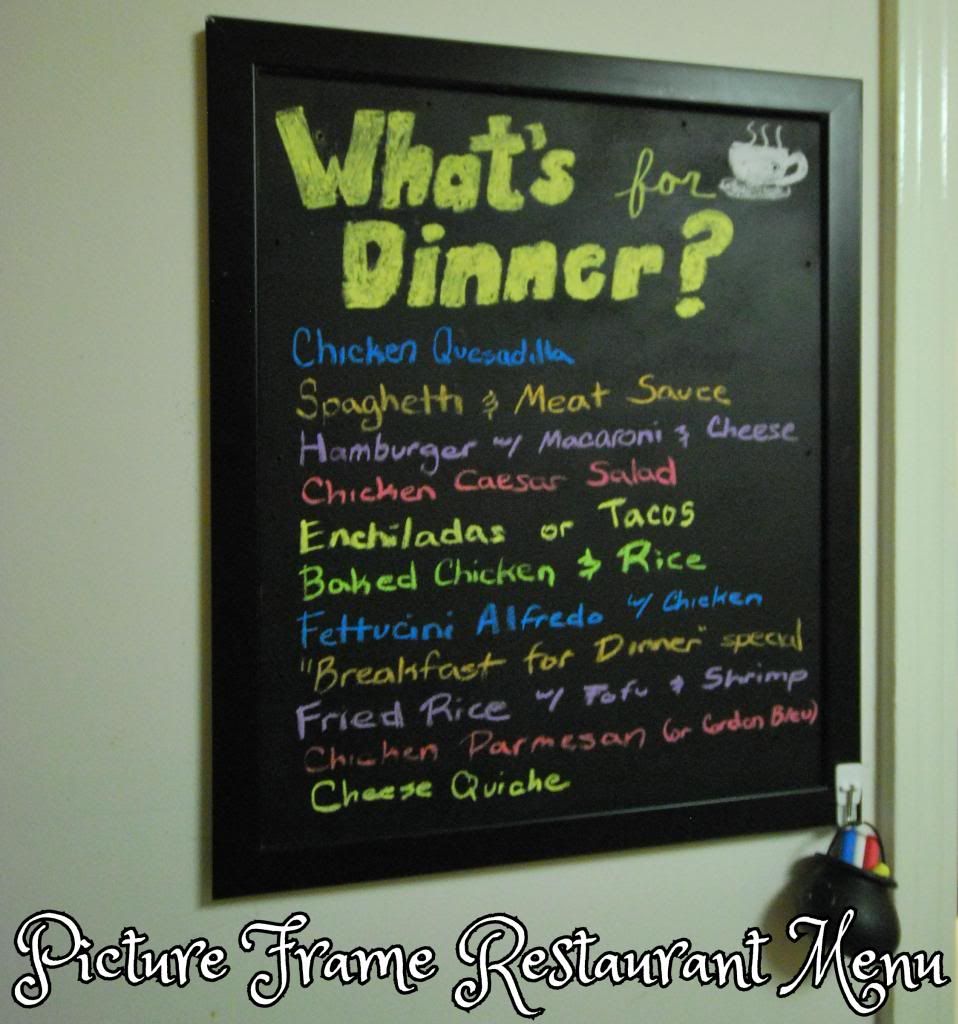 What's for
Dinner?
Chicken Quesadilla
Spaghetti & Meat Sauce
Hamburger w/ Macaroni & Cheese
Chicken Caesar Salad
Enchiladas or Tacos
Baked Chicken & Rice
Fettucini Alfredo w/ Chicken
"Breakfast for Dinner" special
Fried Rice w/ Tofu & Shrimp
Chicken Parmesan (or Cordon Bleu)
Cheese Quiche
Picture Frame Restaurant Menu